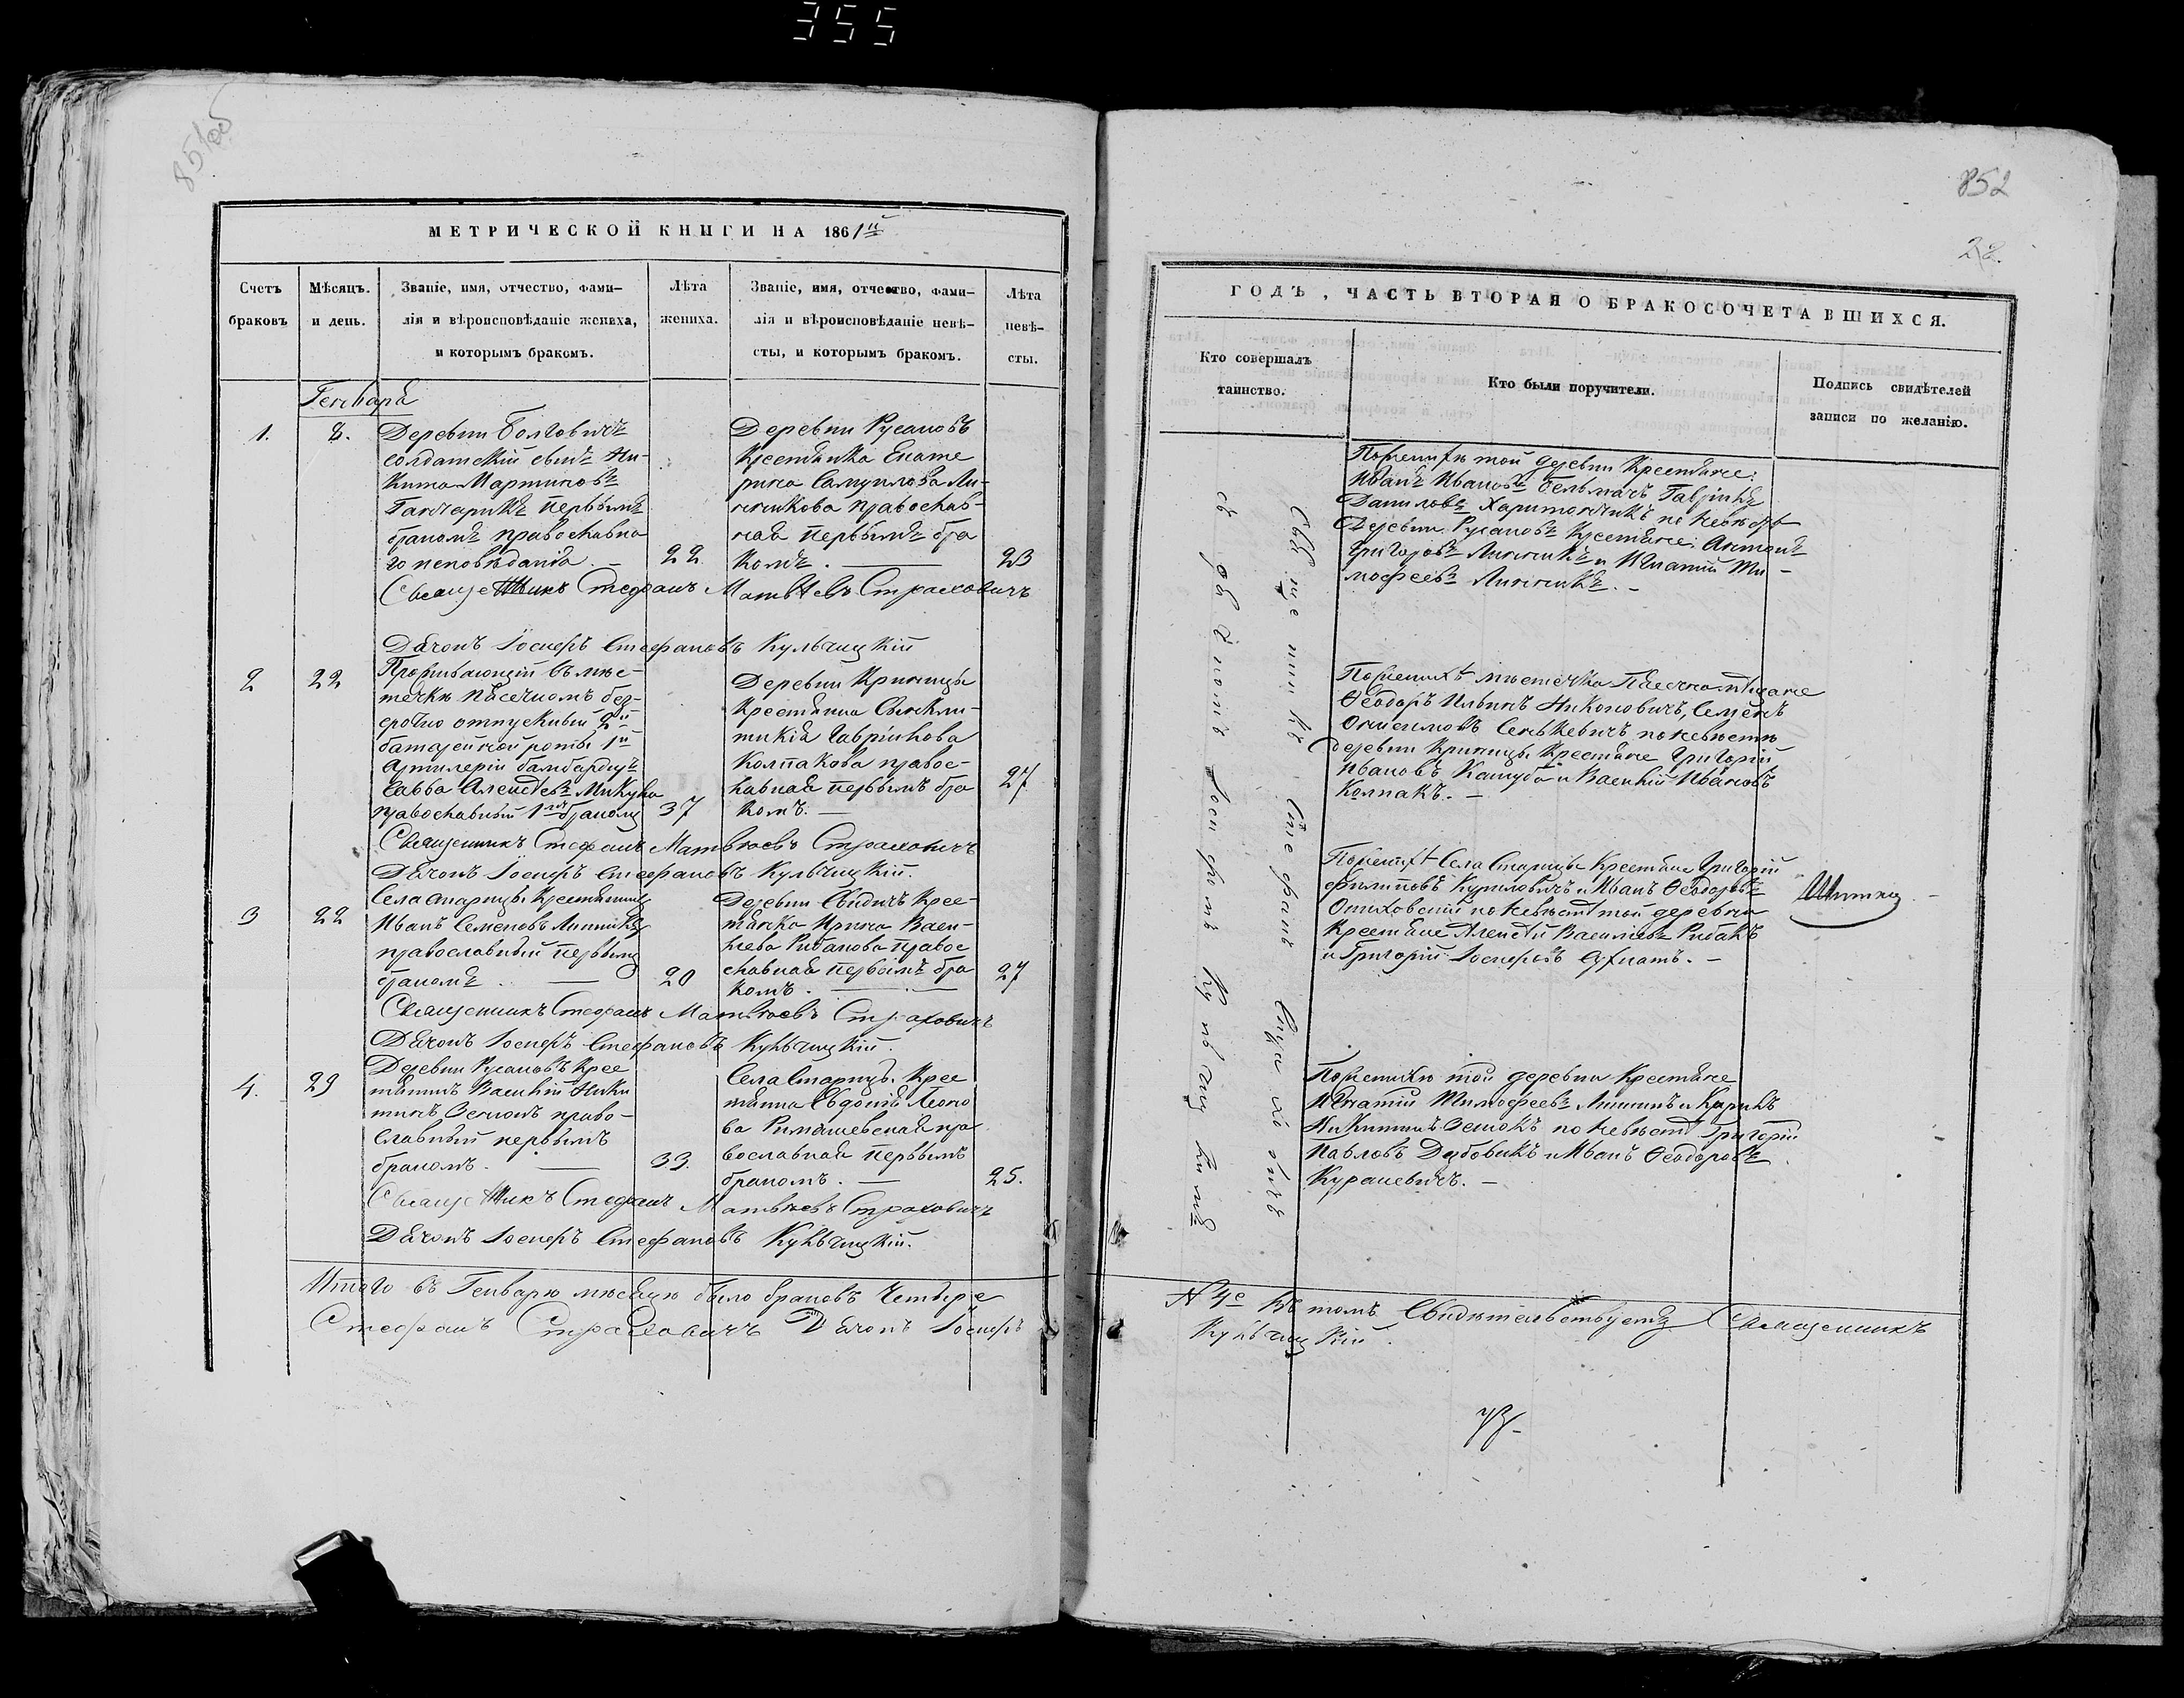 355
851об
МЕТРИЧЕСКОЙ КНИГИ НА 1861й
Счетъ браковъ
Мѣсяцъ. и день.
Званіе, имя, отчество, фами-
лія и вѣроисповѣданіе жениха,
и которымъ бракомъ.
Лѣта
жениха.
Званіе, имя, отчество, фами-
лія и вѣроисповѣданіе невѣ-
сты, и которымъ бракомъ.
Лѣта
невѣ-
сты.
Генваря
1.
8.
Деревни Болтовичъ
солдатскій сынъ Ни-
кита Мартиновъ
Ганчарикъ первымъ
бракомъ православна
го исповѣданія
22
Деревни Русановъ
Крестьянка Екате
рина Самуилова Ли-
нникова православ-
ная первымъ бра
комъ.
23
Священникъ Стефанъ Матвѣевъ Страховичъ
Дьячокъ Іосифъ Стефановъ Кульчицкій
2
22
Проживающій въ мѣс-
течкѣ Пѣсечномъ без-
срочно отпускный 2й
батарейной роты 1й
Артилеріи бамбардиръ
Савва Алексѣевъ Микула
православный 1мъ бракомъ
37
Деревни Криницы
Крестьянка
Гавріилова
Колпакова правос-
лавная первымъ бра
комъ.
27
Священникъ Стефанъ Матвѣевъ Страховичъ
Дьячокъ Іосифъ Стефановъ Кульчицкій.
3
22
Села Старицы Крестьянинъ
Иванъ Семеновъ Линникъ
православный первымъ
бракомъ.
20
Деревни Свидичъ Крес-
тьянка Ирина Васи-
льева Рибакова правос
лавная первымъ бра
комъ.
27
Священникъ Стефанъ Матвѣевъ Страховичъ
Дьячокъ Іосифъ Стефановъ Кульчицкій.
4.
29
Деревни Русановъ Крес
тьянинъ Василій Ники
тинъ Осмокъ право-
славный первымъ
бракомъ.
33.
Села Старицы Крес
тьянка Евдокія Леоно
ва Римашевская пра
вославная первымъ
бракомъ.
25.
Священникъ Стефанъ Матвѣевъ Страховичъ
Дьячокъ Іосифъ Стефановъ Кульчицкій.
Итого въ Генварѣ мѣсяцѣ было браковъ Четыре
Стефанъ Страховичъ Дьячокъ Іосифъ
852
28.
ГОДЪ, ЧАСТЬ ВТОРАЯ О БРАКОСОЧЕТАВШИХСЯ.
Кто совершалъ
таинство.
Кто были поручители.
Подпись свидѣтелей
записи по желанію.
Священникъ Стефанъ Страховичъ
съ дьячкомъ Іосифомъ Кульчицкимъ
По женихѣ той деревни Крестьяне:
Иванъ Ивановъ Бельмачъ Гавріилъ
Даниловъ Харитончикъ по невѣстѣ
Деревни Русановъ Крестьяне: Антонъ
Григоровъ Линникъ и Игнатій Ти-
мофеевъ Линникъ.
По женихѣ мѣстечка Пѣсечна
Ѳеодоръ Ильинъ Никоновичъ, Семенъ
Онисимовъ Сенькевичъ по невѣстѣ
деревни Криницы Крестьяне Григорій
Ивановъ Кашуба и Василій Ивановъ
Колпакъ.
По женихѣ Села Старицы Крестьяне Григорій
Филиповъ Куриловичъ и Иванъ Ѳеодоровъ
по невѣстѣ той деревни
Крестьяне Алексѣй Васильевъ Рибакъ
и Григорій Іосифовъ
По женихѣ той деревни Крестьяне
Игнатій Тимофеевъ Линникъ и
Никитинъ Осмокъ по невѣстѣ Григорій
Павловъ Дубовикъ и Иванъ Ѳеодоровъ
Курачевичъ.
№ 4е Въ томъ Свидѣтельствуетъ Священникъ
Кульчицкій.